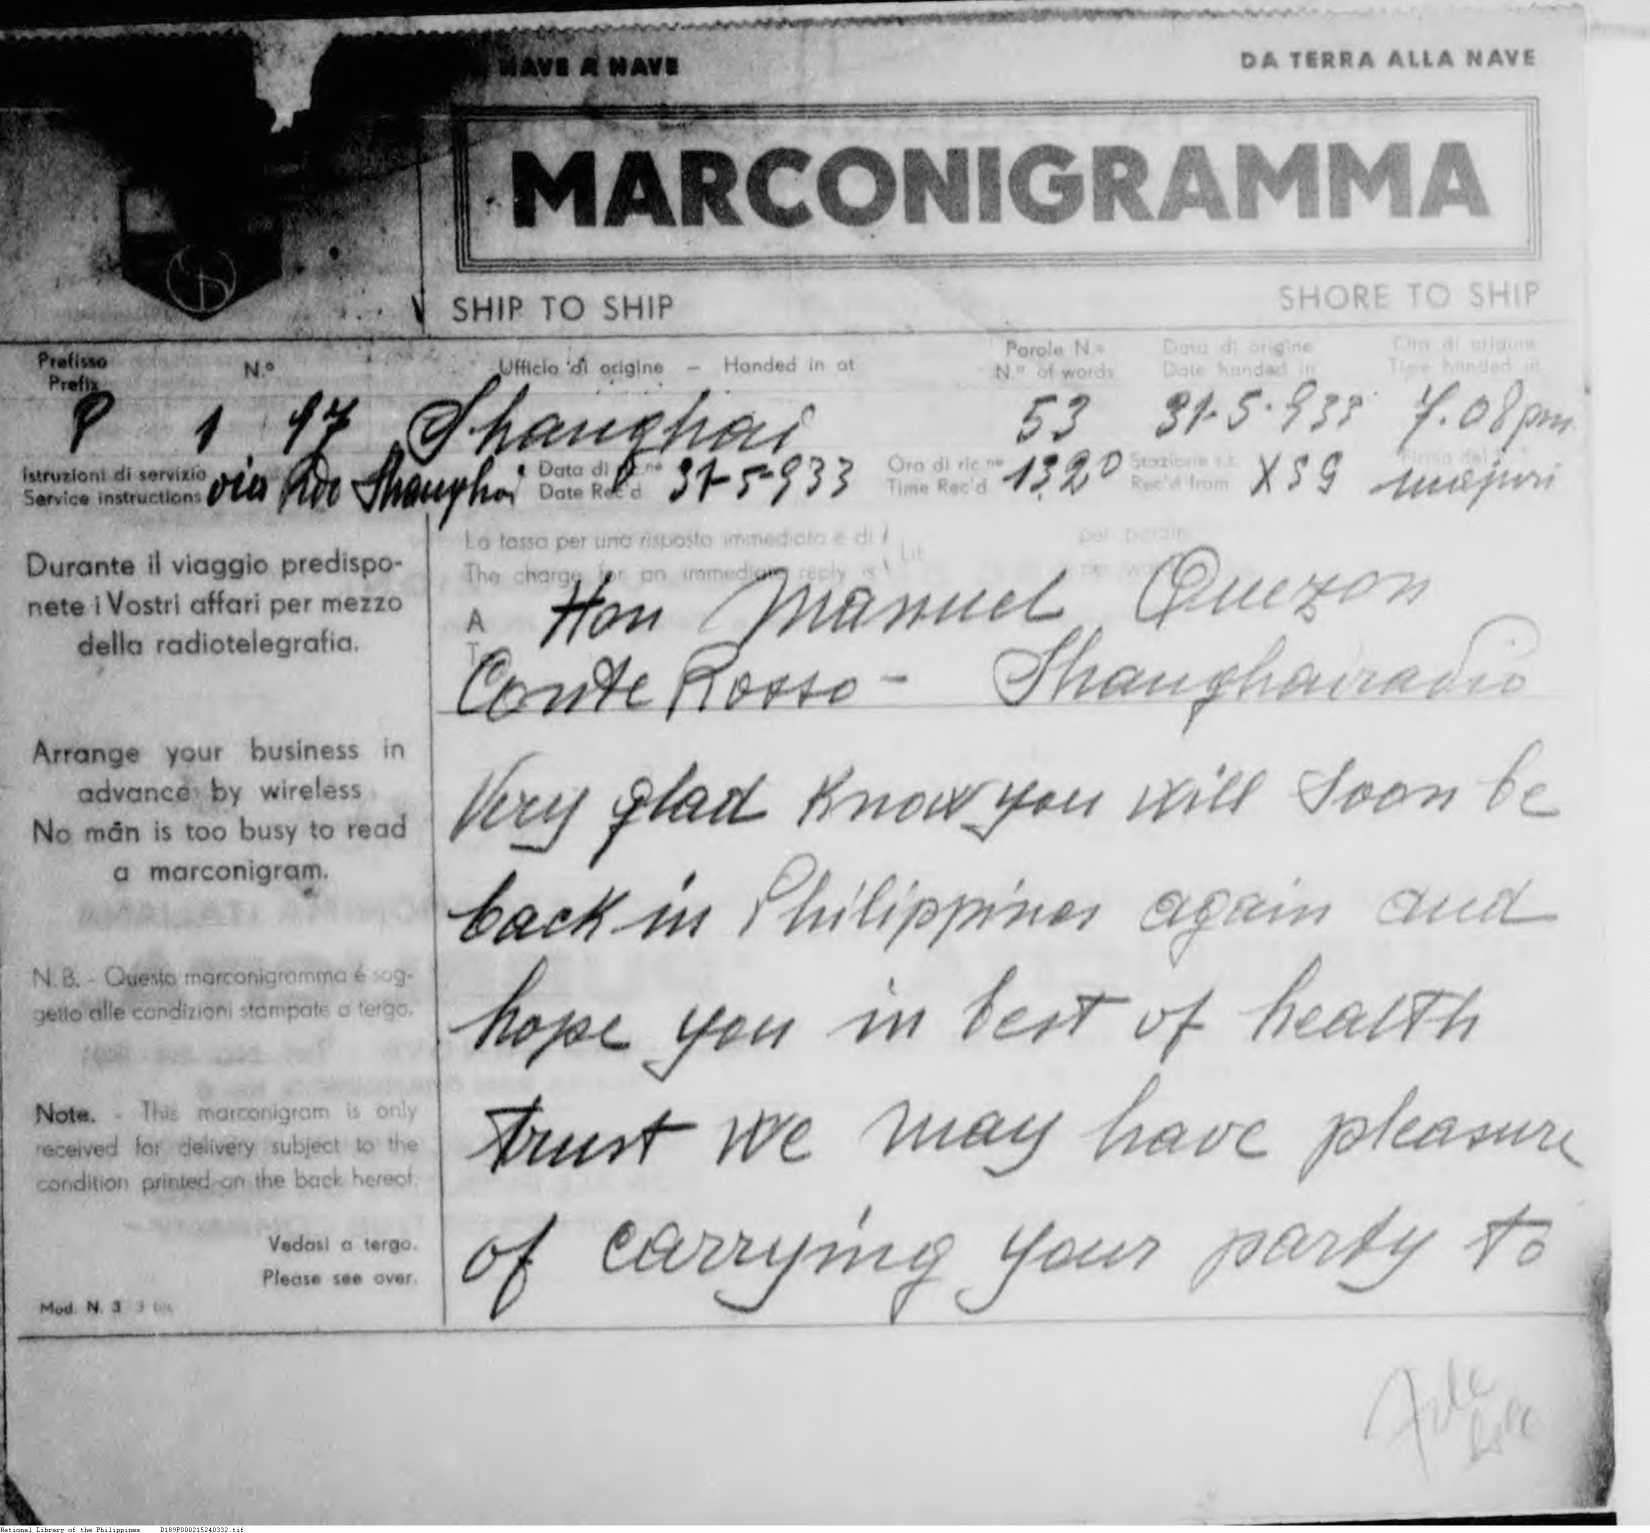 NAVE A NAVE
DA TERRA ALLA NAVE
MARCONIGRAMMA
SHIP TO SHIP
SHORE TO SHIP
Prefisso
Prefix
N.o
Ufficio di origine – Handed in at
Parole N.o
N.o of words
Data di origine
Date handed in
Ora di origine
Time handed in
P 1 97 Shanghai 53 31-5-933 7.08 pm
Istruzioni di servizio
Service instructions
via Rdo Shanghai
Data di ric.ne
Date Rec'd
31-5-933
Ora di ric.ne
Time Rec'd
1320
Stazione r.t.
Rec'd from
XSG
Durante il viaggio predispo-
nete i Vostri affari per mezzo
della radiotelegrafia.
Arrange your business in
advance by wireless
No man is too busy to read
a marconigram.
N. B. - Questo marconigramma é sog-
getto alle condizioni stampate a tergo.
Note. - This marconigram is only
received for delivery subject to the
condition printed on the back hereof.
Vedasi a tergo.
Please see over.
Mod. N. 3
La tassa per una risposta immediata é di Lit. per parola
The charge for an immediate reply is
A
To
Hon Manuel Quezon
Conte Rosso - Shanghairadio
Very glad know you will soon be
back in Philippines again and
hope you in best of health
trust we may have pleasure
of carrying your party to
National Library of the Philippines D189P000215240332.tif